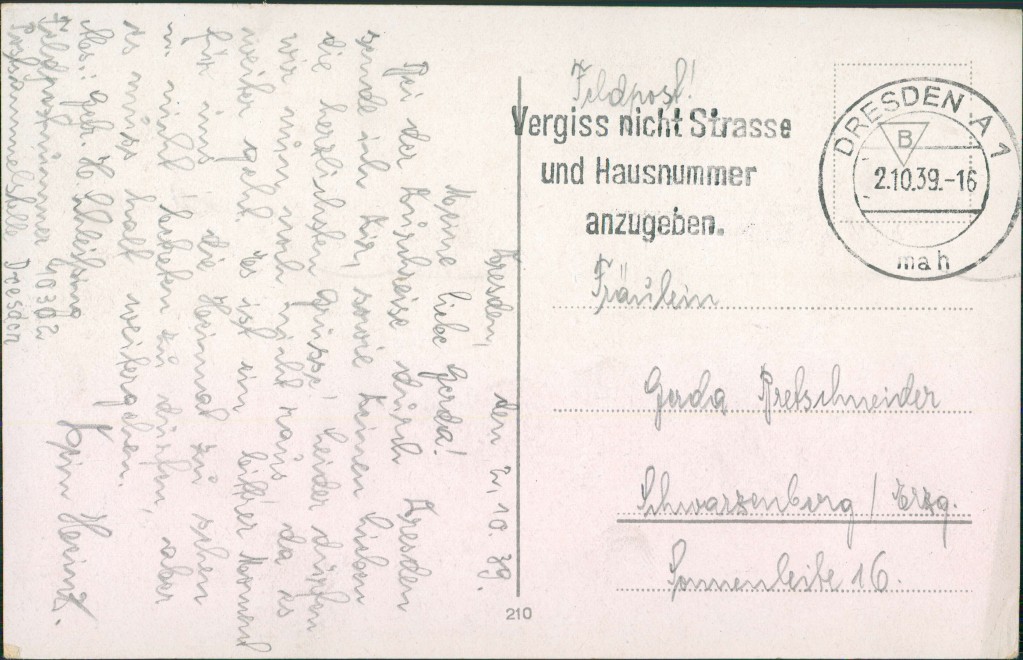 Dresden, den 2.10.39.
Meine liebe Gerda!
Bei der Durchreise durch Dresden
sende ich Dir, sowie Deinen lieben
die herzlichsten Grüsse! Leider dürfen
wir nun noch nicht raus da es
weiter geht. Es ist ein bitterer Moment
für uns die Heimat zu sehen
u. nicht bleiben zu dürfen, aber
es muss halt weitergehen.
Dein Heinz.
Abs.: Gefr. H.
Feldpostnummer 10302
Postsammelstelle Dresden
Feldpost!
Vergiss nicht Strasse
und Hausnummer
anzugeben.
DRESDEN A 1
B
2.10.39.-16
mah
Fräulein
Gerda Bretschneider
Schwarzenberg / Erzg.
Sonnenleite 16.
210